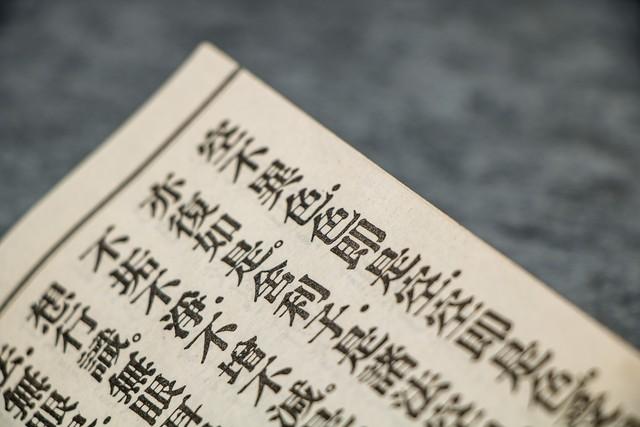 空不異色.色即是空.空即是色.受
亦復如是。舍利子.是諸法空
不垢不淨.不增不減。是
想行識。無眼耳
法.無眼